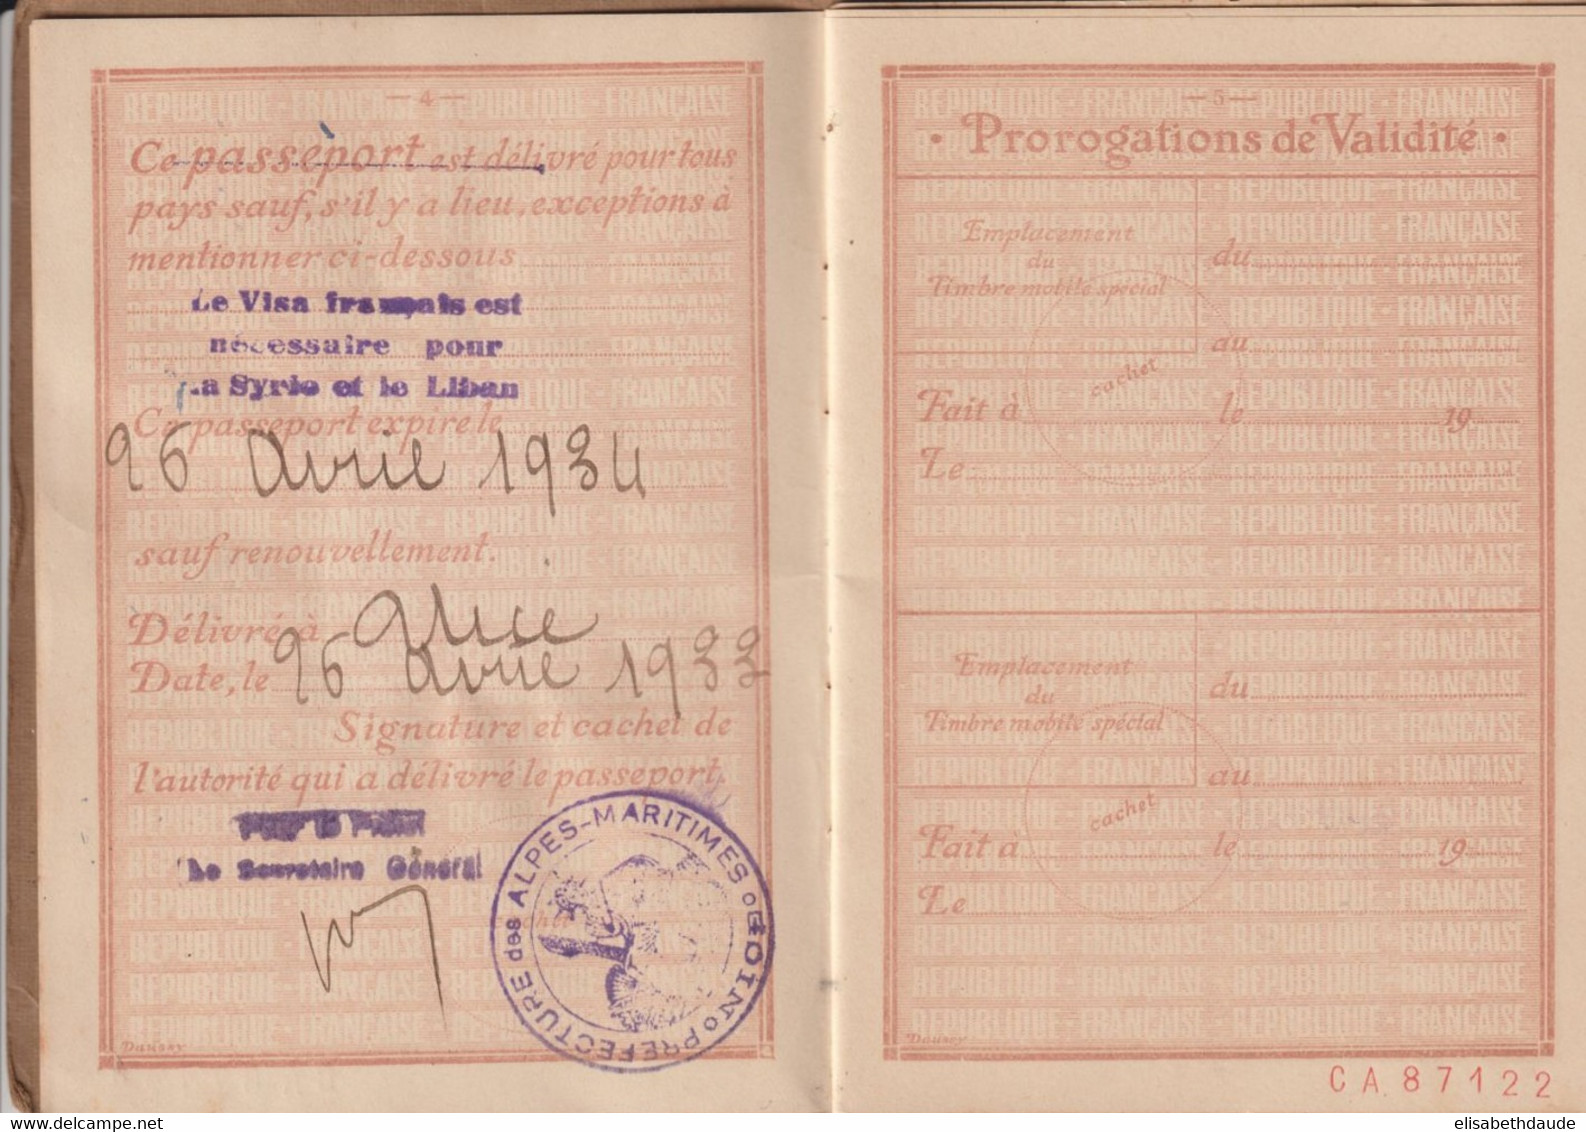 — 4 —
Ce passeport est délivré pour tous
pays sauf, s'il y a lieu, exceptions à
mentionner ci-dessous
Le Visa français est
nécessaire pour
La Syrie et le Liban
Ce passeport expire le
26 avril 1934
sauf renouvellement.
Délivré à Nice
Date, le 26 avril 1933
Signature et cachet de
l'autorité qui a délivré le passeport,
Pour le Préfet
Le Secrétaire Général
cachet
PREFECTURE des ALPES-MARITIMES
Daussy
— 5 —
• Prorogations de Validité •
Emplacement
du
Timbre mobile spécial
du
au
cachet
Fait à le 19
Le
Emplacement
du
Timbre mobile spécial
du
au
cachet
Fait à le 19
Le
Daussy
CA.87122
REPUBLIQUE - FRANÇAISE - REPUBLIQUE - FRANÇAISE
elisabethdaude